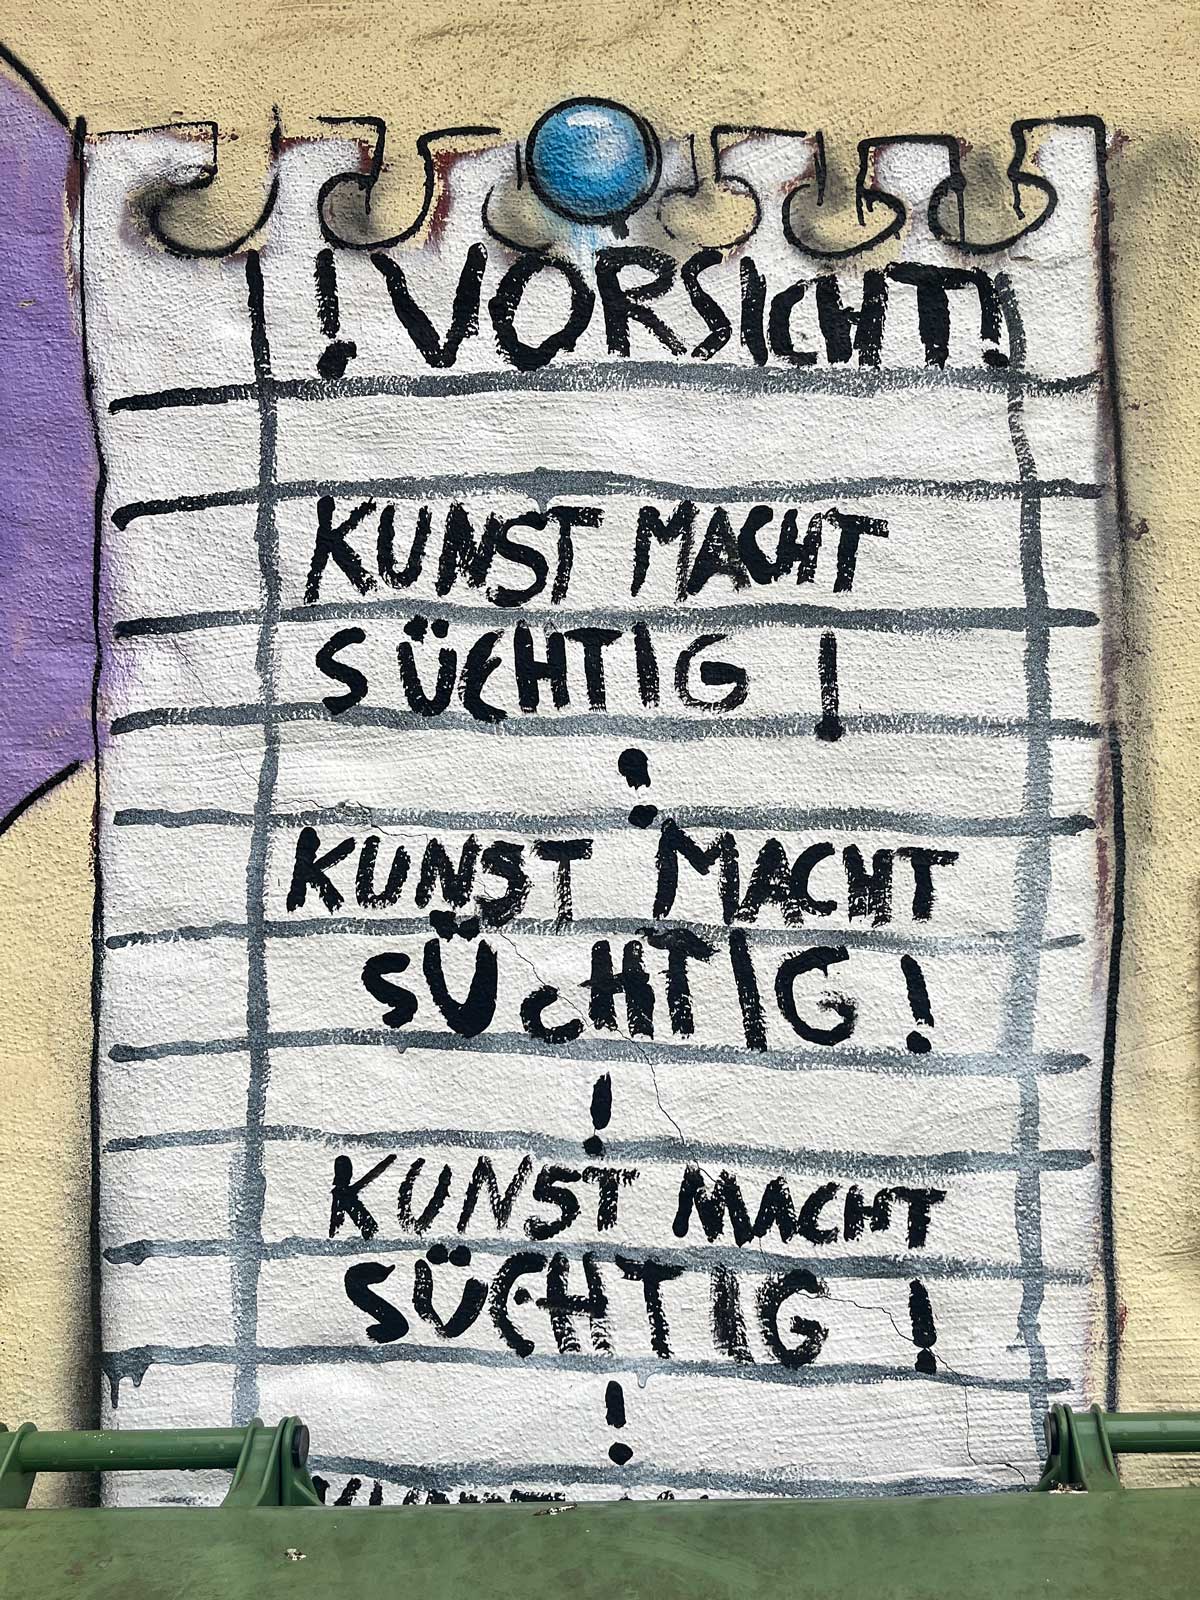 ! VORSICHT!
KUNST MACHT
SÜCHTIG !
!
KUNST MACHT
SÜCHTIG !
!
KUNST MACHT
SÜCHTIG !
!